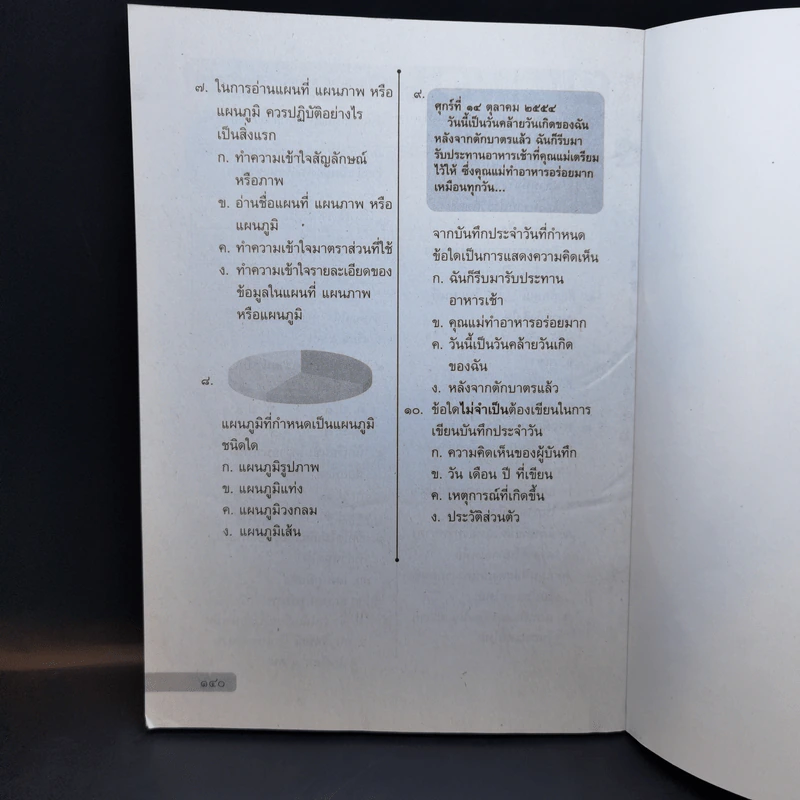 ๗. ในการอ่านแผนที่ แผนภาพ หรือ
แผนภูมิ ควรปฏิบัติอย่างไร
เป็นสิ่งแรก
ก. ทำความเข้าใจสัญลักษณ์
หรือภาพ
ข. อ่านชื่อแผนที่ แผนภาพ หรือ
แผนภูมิ
ค. ทำความเข้าใจมาตราส่วนที่ใช้
ง. ทำความเข้าใจรายละเอียดของ
ข้อมูลในแผนที่ แผนภาพ
หรือแผนภูมิ
๘.
แผนภูมิที่กำหนดเป็นแผนภูมิ
ชนิดใด
ก. แผนภูมิรูปภาพ
ข. แผนภูมิแท่ง
ค. แผนภูมิวงกลม
ง. แผนภูมิเส้น
๙.
ศุกร์ที่ ๑๔ ตุลาคม ๒๕๕๔
วันนี้เป็นวันคล้ายวันเกิดของฉัน
หลังจากตักบาตรแล้ว ฉันก็รีบมา
รับประทานอาหารเช้าที่คุณแม่เตรียม
ไว้ให้ ซึ่งคุณแม่ทำอาหารอร่อยมาก
เหมือนทุกวัน...
จากบันทึกประจำวันที่กำหนด
ข้อใดเป็นการแสดงความคิดเห็น
ก. ฉันก็รีบมารับประทาน
อาหารเช้า
ข. คุณแม่ทำอาหารอร่อยมาก
ค. วันนี้เป็นวันคล้ายวันเกิด
ของฉัน
ง. หลังจากตักบาตรแล้ว
๑๐. ข้อใดไม่จำเป็นต้องเขียนในการ
เขียนบันทึกประจำวัน
ก. ความคิดเห็นของผู้บันทึก
ข. วัน เดือน ปี ที่เขียน
ค. เหตุการณ์ที่เกิดขึ้น
ง. ประวัติส่วนตัว
๑๔๐